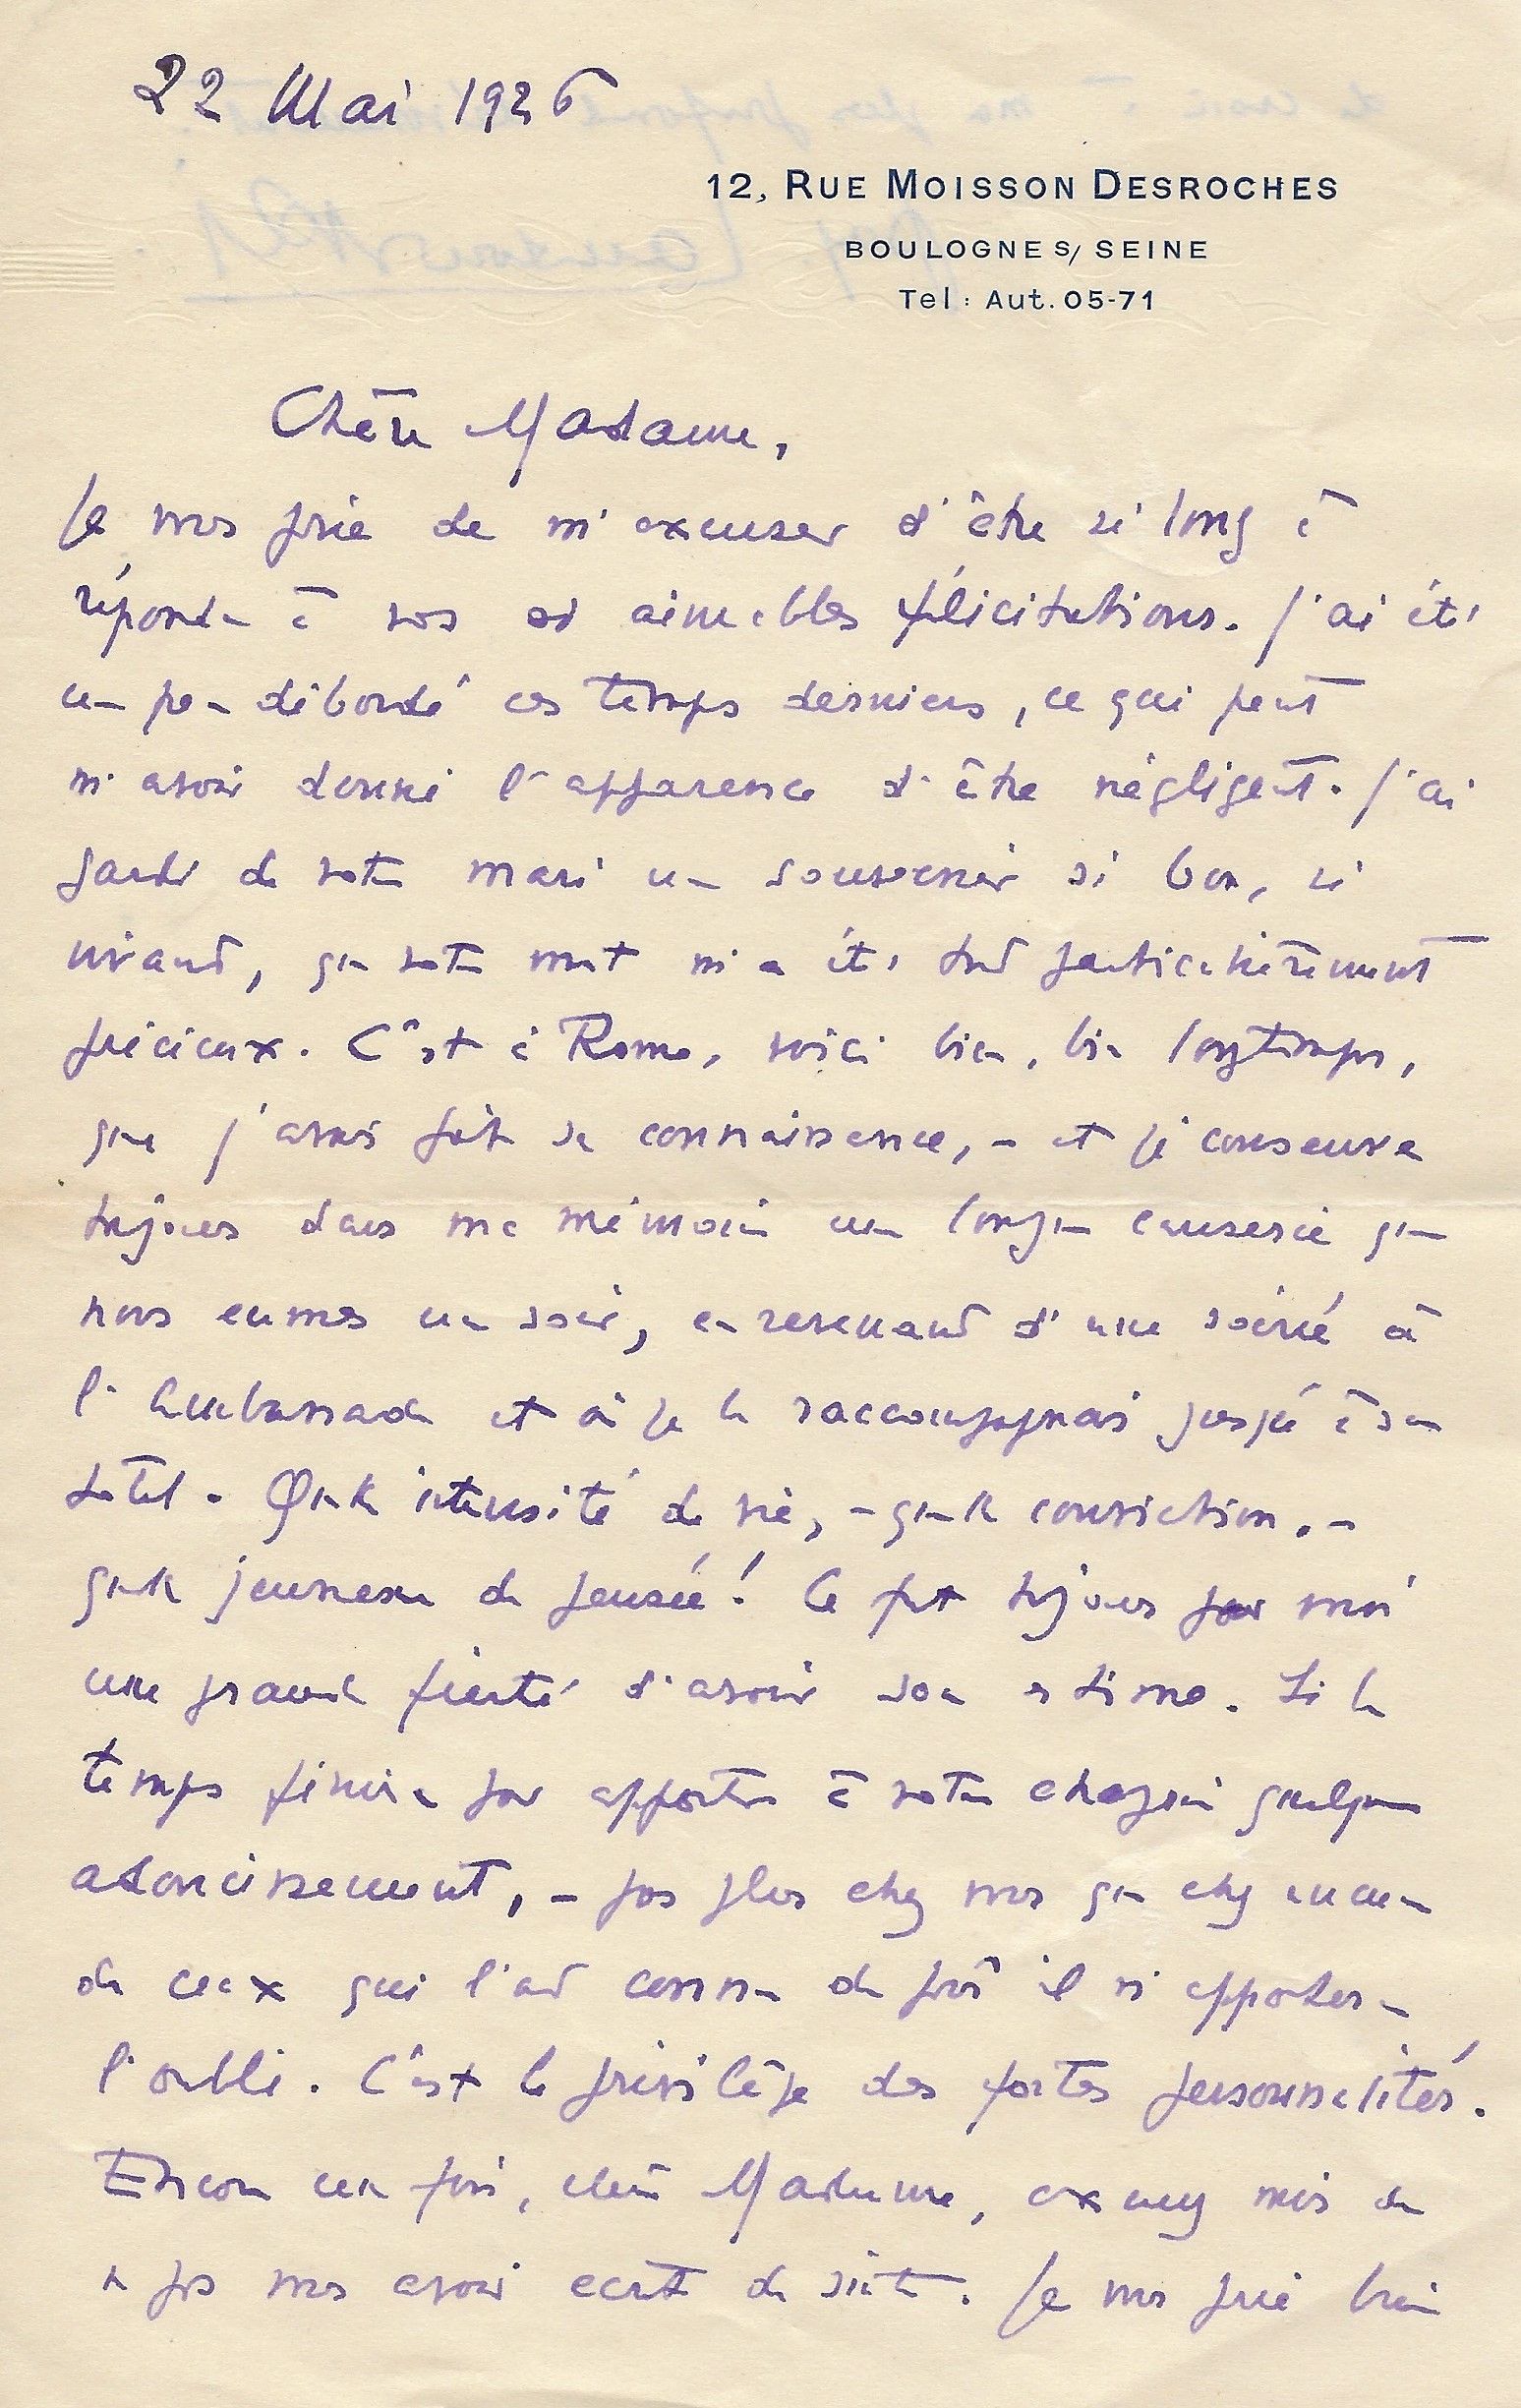 22 Mai 1926
12, RUE MOISSON DESROCHES
BOULOGNE S/ SEINE
Tel : Aut. 05-71
Chère Madame,
Je vous prie de m'excuser d'être si long à
répondre à vos si aimables félicitations. J'ai été
un peu débordé ces temps derniers, ce qui peut
m'avoir donné l'apparence d'être négligent. J'ai
gardé de votre mari un souvenir si bon, si
vivant, que votre mot m'a été tout particulièrement
précieux. C'est à Rome, voici bien, bien longtemps,
que j'avais fait sa connaissance, - et je conserve
toujours dans ma mémoire une longue causerie que
nous eumes un soir, en revenant d'une soirée à
l'Ambassade et où je le raccompagnais jusqu'à son
hôtel. Quelle intensité de vie, - quelle conviction, -
quelle jeunesse de pensée! Ce fut toujours pour moi
une grande fierté d'avoir son estime. Si le
temps finira par apporter à votre chagrin quelque
adoucissement, - pas plus chez vous que chez aucun
de ceux qui l'ont connu de près il n'apportera
l'oubli. C'est le privilège des fortes personnalités.
Encore une fois, chère Madame, excusez moi de
ne pas vous avoir écrit de suite. Je vous prie bien